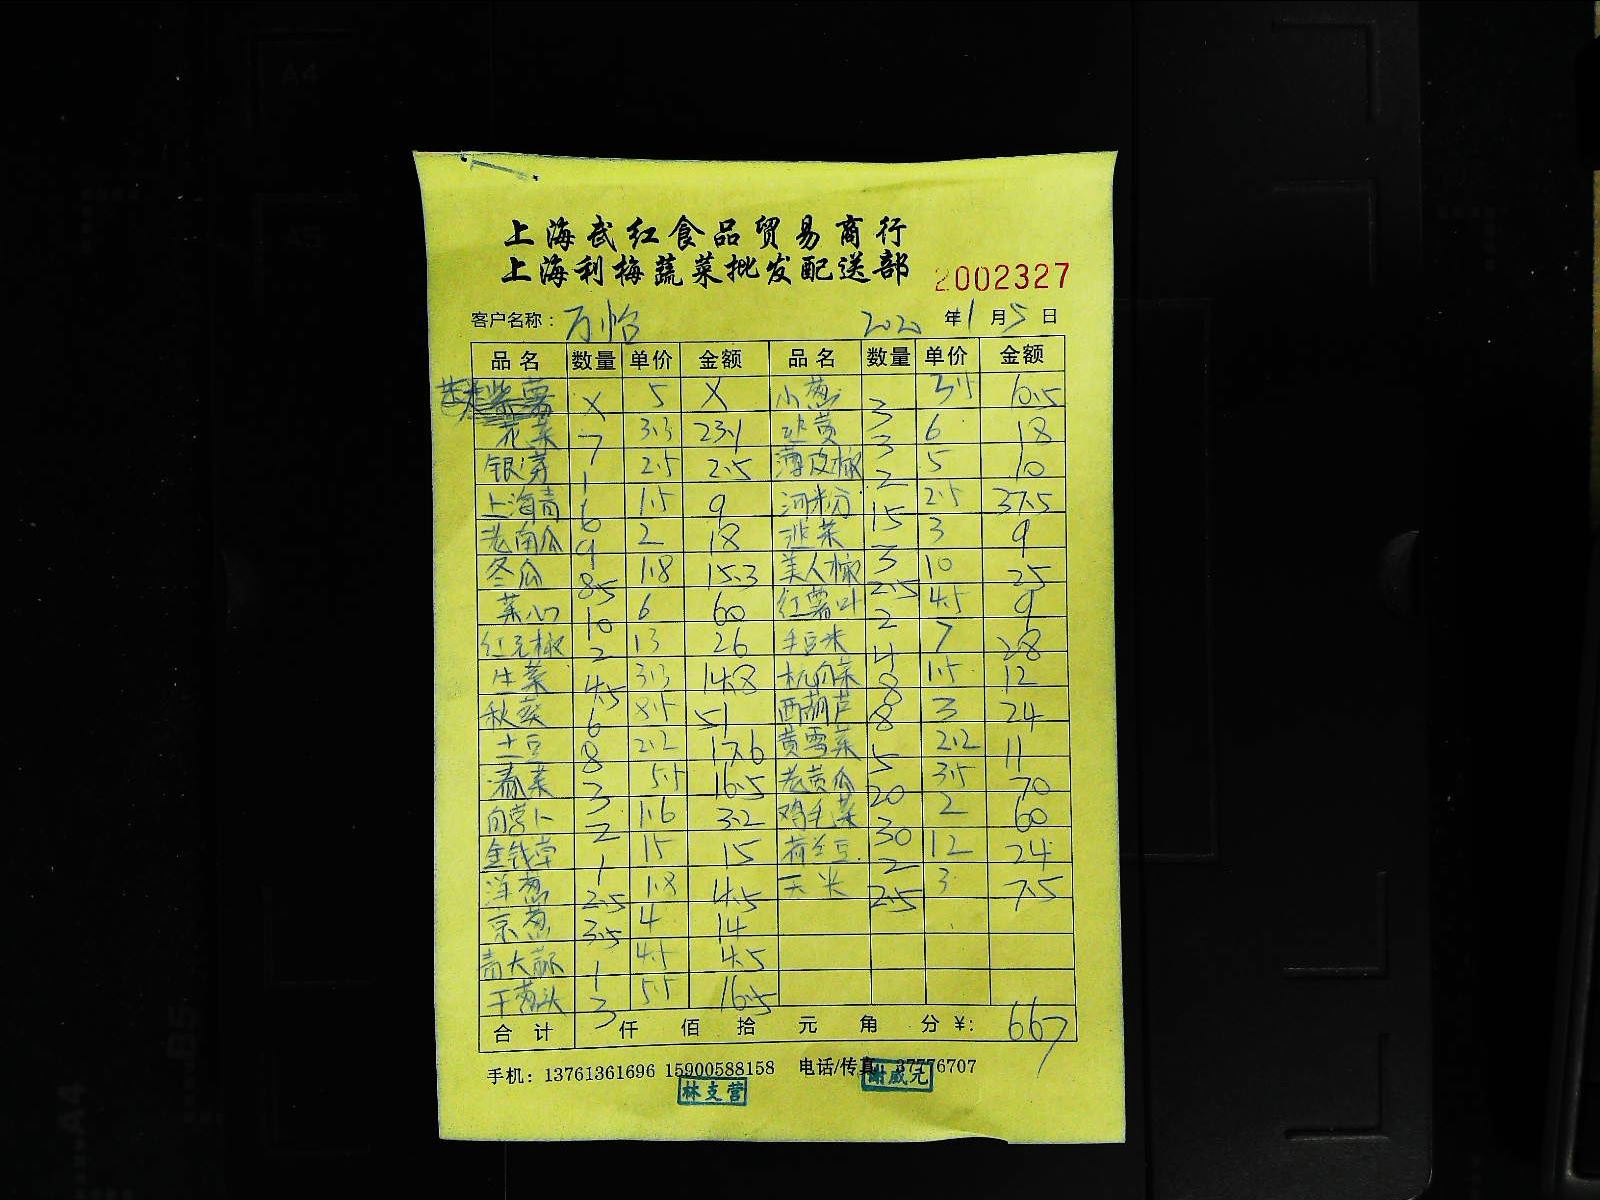 上海武红食品贸易商行
上海利梅蔬菜批发配送部 2002327
客户名称：万怡 2020 年1月5日
品名 数量 单价 金额 品名 数量 单价 金额
紫薯 X 5 X 小葱 3 3.5 10.5
花菜 7 3.3 23.1 韭黄 3 6 18
银芽 1 2.5 2.5 薄皮椒 2 5 10
上海青 6 1.5 9 河粉 15 2.5 37.5
老南瓜 9 2 18 韭菜 3 3 9
冬瓜 8.5 1.8 15.3 美人椒 2.5 10 25
菜心 10 6 60 红薯叶 2 4.5 9
红元椒 2 13 26 毛豆米 4 7 28
生菜 4.5 3.3 14.8 杭白菜 8 1.5 12
秋葵 6 8.5 51 西葫芦 8 3 24
土豆 8 2.2 17.6 黄雪菜 5 2.2 11
菜 3 5.5 16.5 老黄瓜 20 3.5 70
白萝卜 2 1.6 3.2 鸡毛菜 30 2 60
金钱草 1 15 15 荷兰豆 2 12 24
洋葱 2.5 1.8 4.5 玉米 2.5 3 7.5
京葱 3.5 4 14
青大蒜 1 4.5 4.5
干葱头 3 5.5 16.5
合计 仟 佰 拾 元 角 分 ¥: 667
手机：13761361696 15900588158 电话/传真 37776707
林支营 谢威元